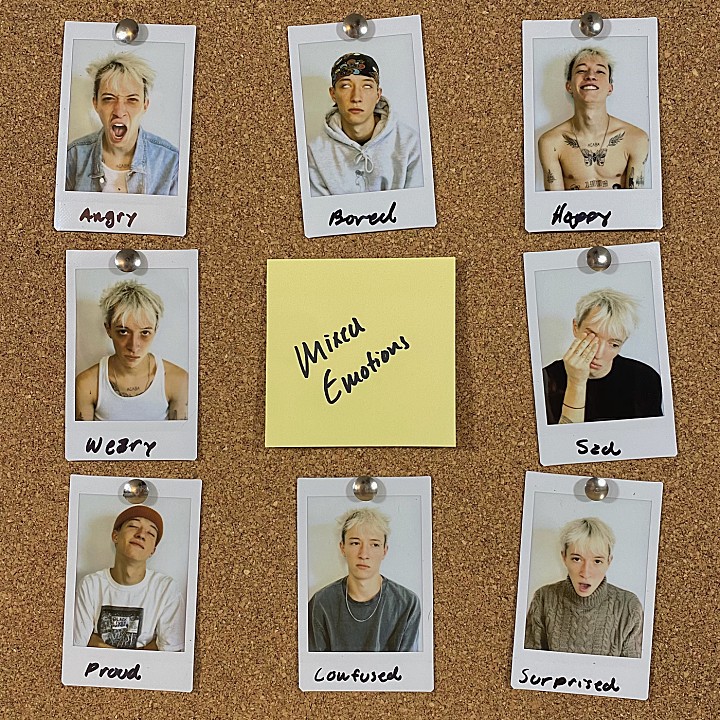 Angry
Bored
Happy
Weary
Mixed
Emotions
Sad
Proud
Confused
Surprised